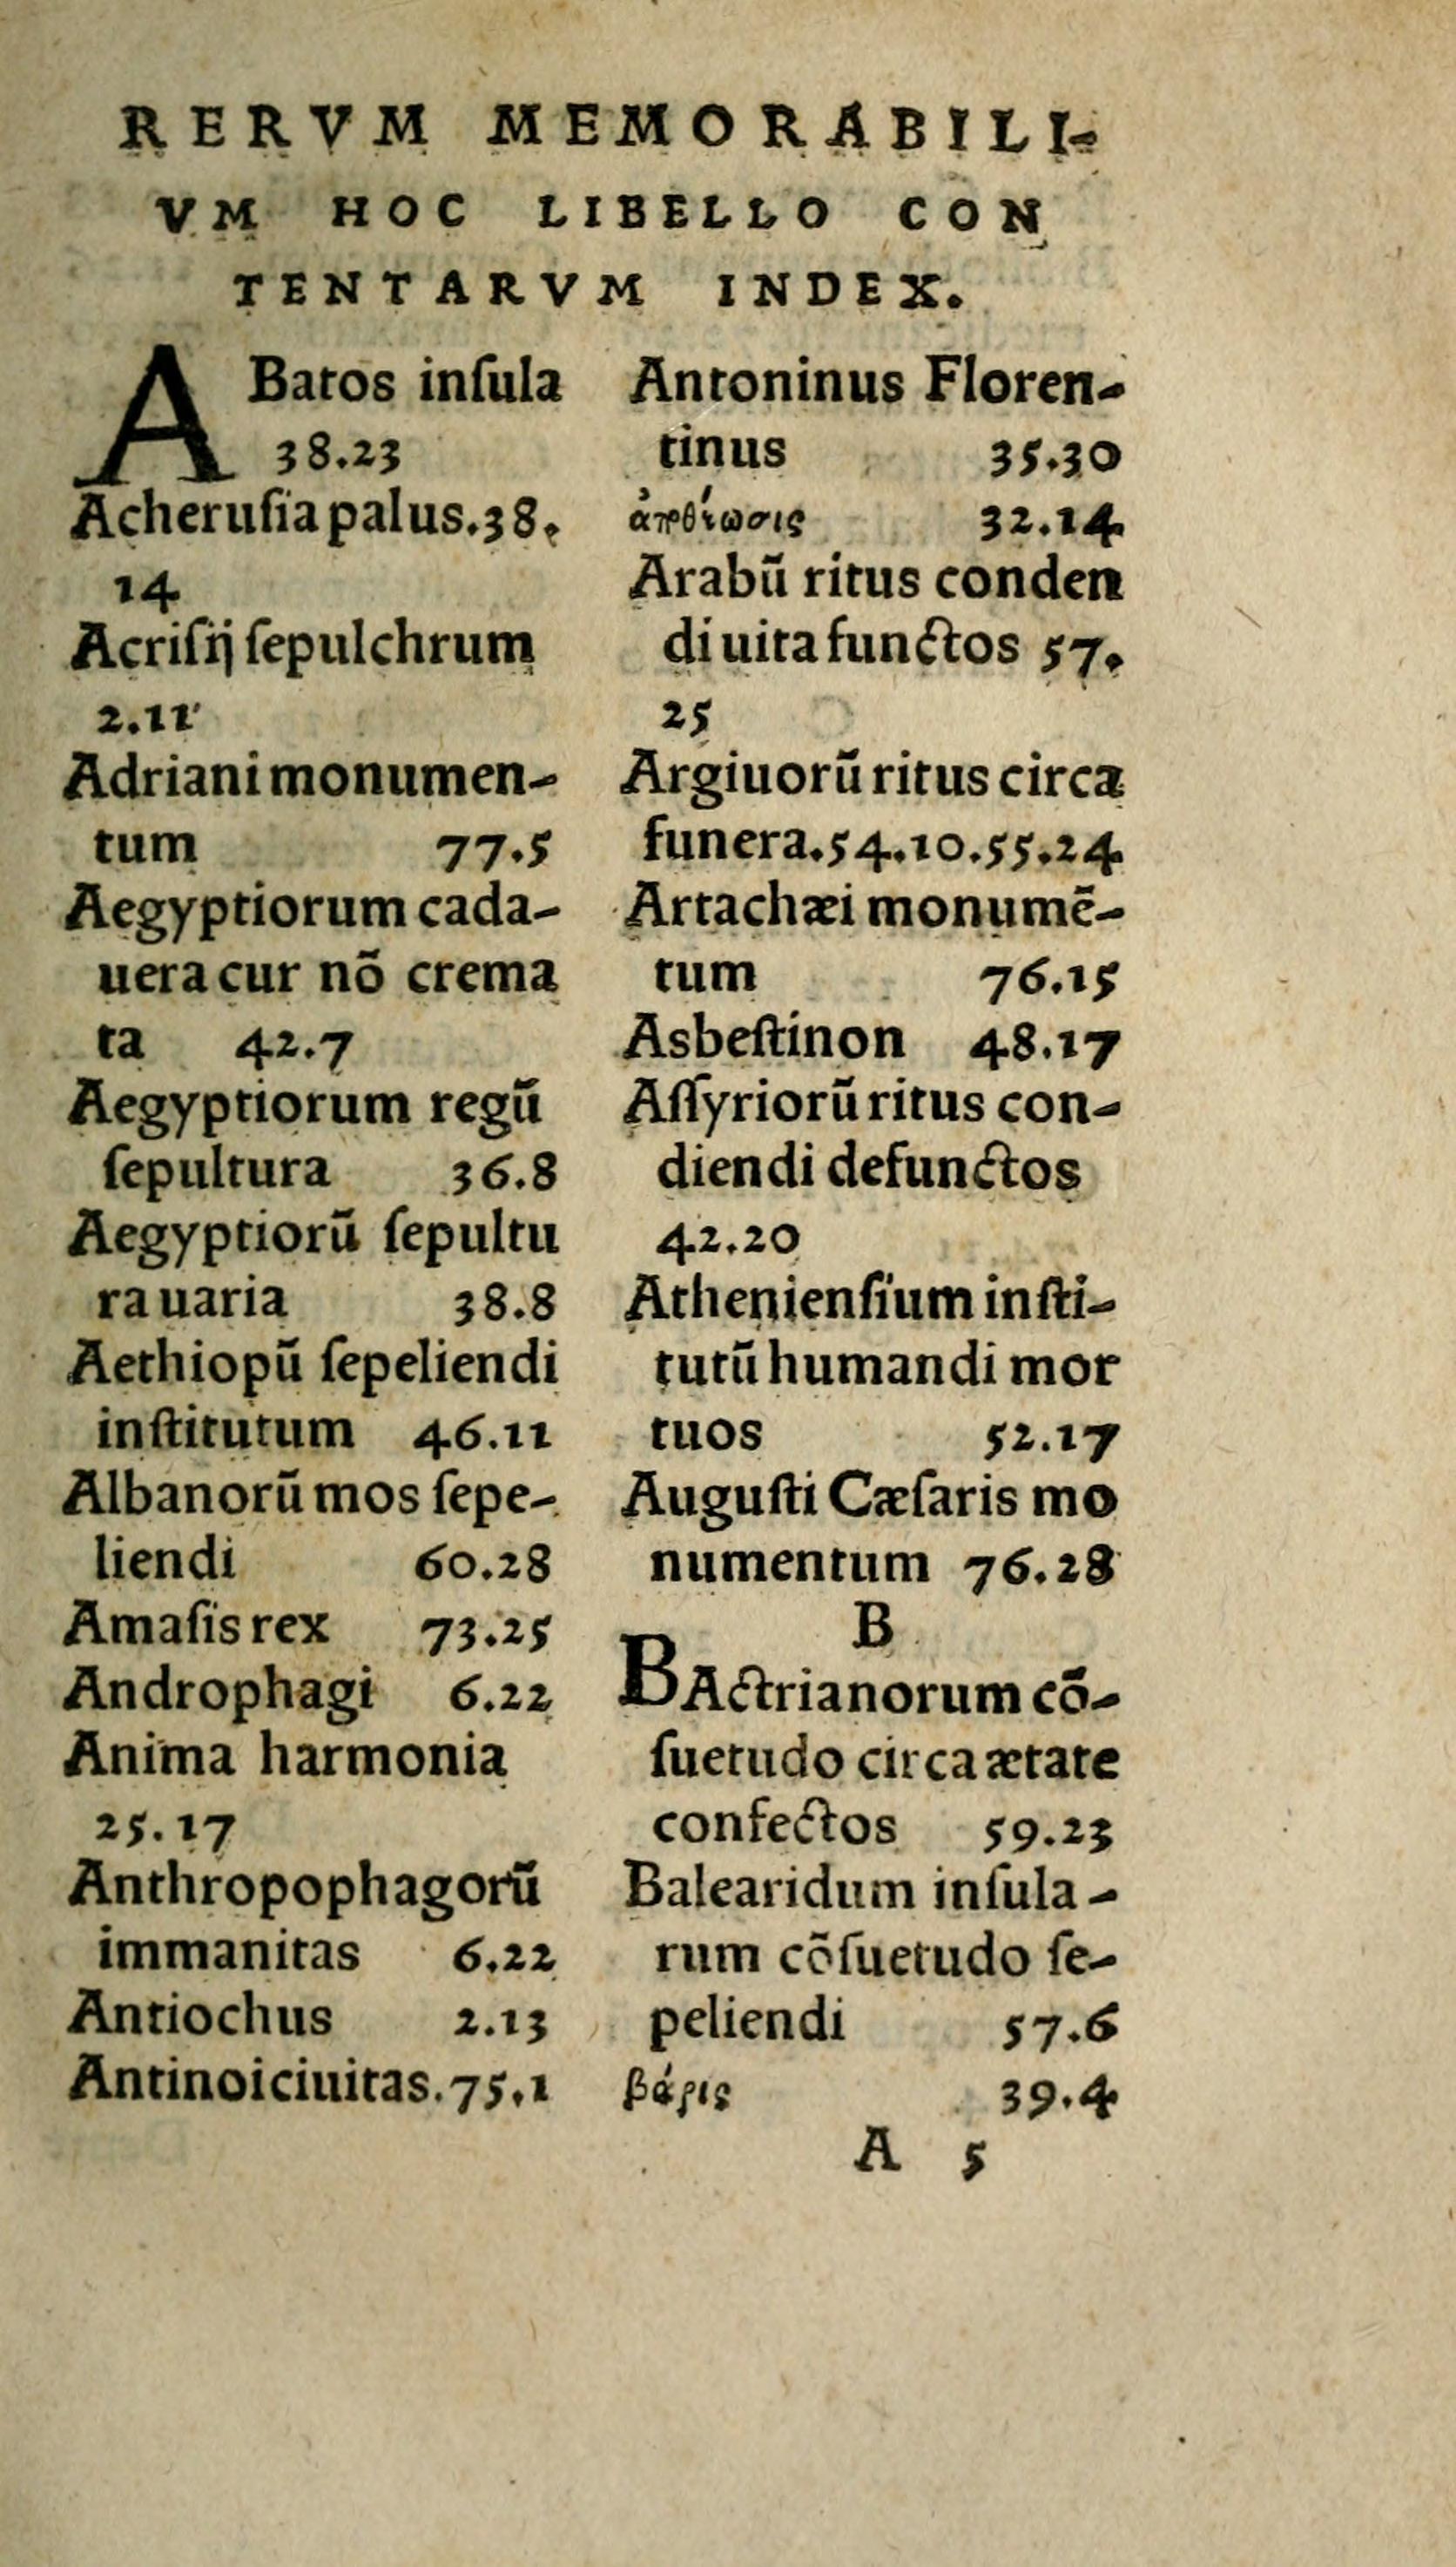 RERVM MEMORABILI-
VM HOC LIBELLO CON
TENTARVM INDEX.
ABatos inſula
38.23
Acheruſia palus.38.
14
Acriſij ſepulchrum
2.11
Adriani monumen-
tum 77.5
Aegyptiorum cada-
uera cur nõ crema
ta 42.7
Aegyptiorum regũ
ſepultura 36.8
Aegyptiorũ ſepultu
ra uaria 38.8
Aethiopũ ſepeliendi
inſtitutum 46.11
Albanorũ mos ſepe-
liendi 60.28
Amaſis rex 73.25
Androphagi 6.22
Anima harmonia
25.17
Anthropophagorũ
immanitas 6.22
Antiochus 2.13
Antinoi ciuitas.75.1
Antoninus Floren-
tinus 35.30
ἀποθέωσις 32.14
Arabũ ritus conden
di uita functos 57.
25
Argiuorũ ritus circa
funera.54.10.55.24
Artachæi monumẽ-
tum 76.15
Asbeſtinon 48.17
Aſſyriorũ ritus con-
diendi defunctos
42.20
Athenienſium inſti-
tutũ humandi mor
tuos 52.17
Auguſti Cæſaris mo
numentum 76.28
B
BActrianorum cõ-
ſuetudo circa ætate
confectos 59.23
Balearidum inſula-
rum cõſuetudo ſe-
peliendi 57.6
βάρις 39.4
A 5